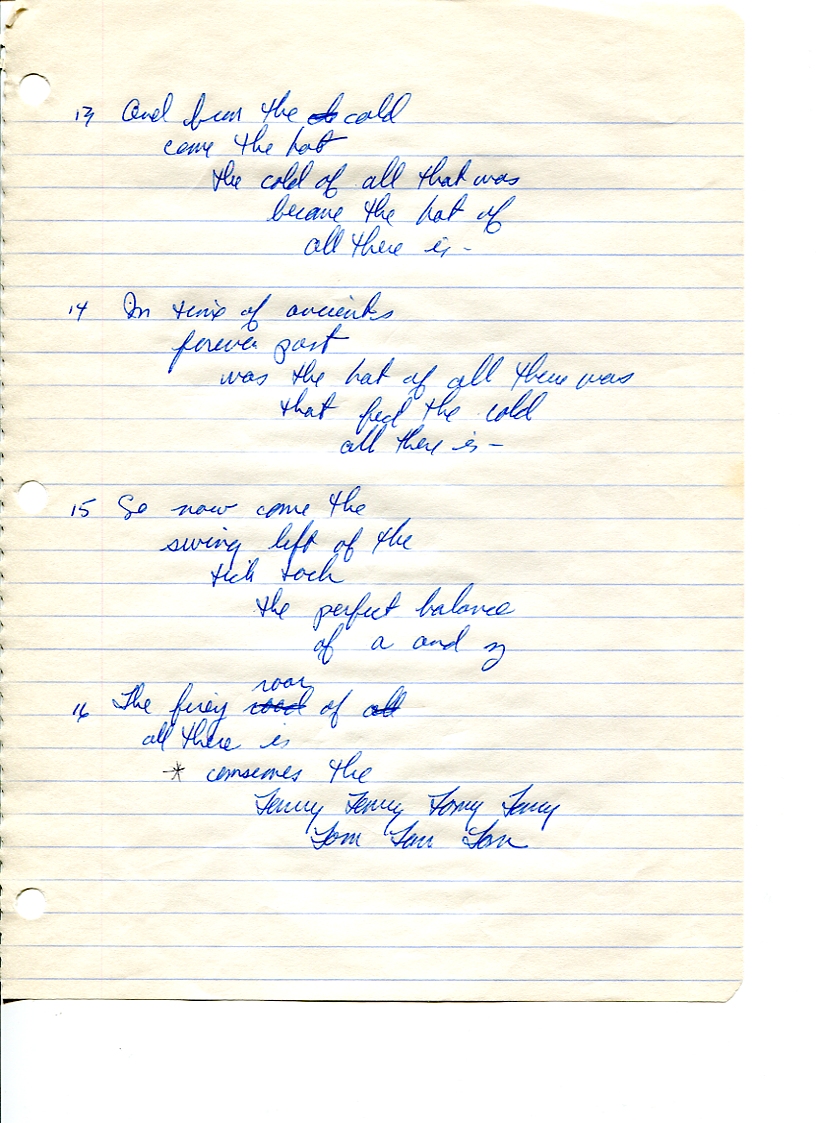 13 And from the cold
come the hot
the cold of all that was
became the hot of
all there is -
14 In time of ancients
forever past
was the hot of all there was
that fed the cold
all there is -
15 So now come the
swing left of the
tick tock
the perfect balance
of a and z
roar
16 The firey road of all
all there is
* consumes the
Tom